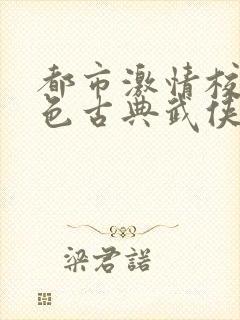 都市激情校
色古典武侠
梁君諾